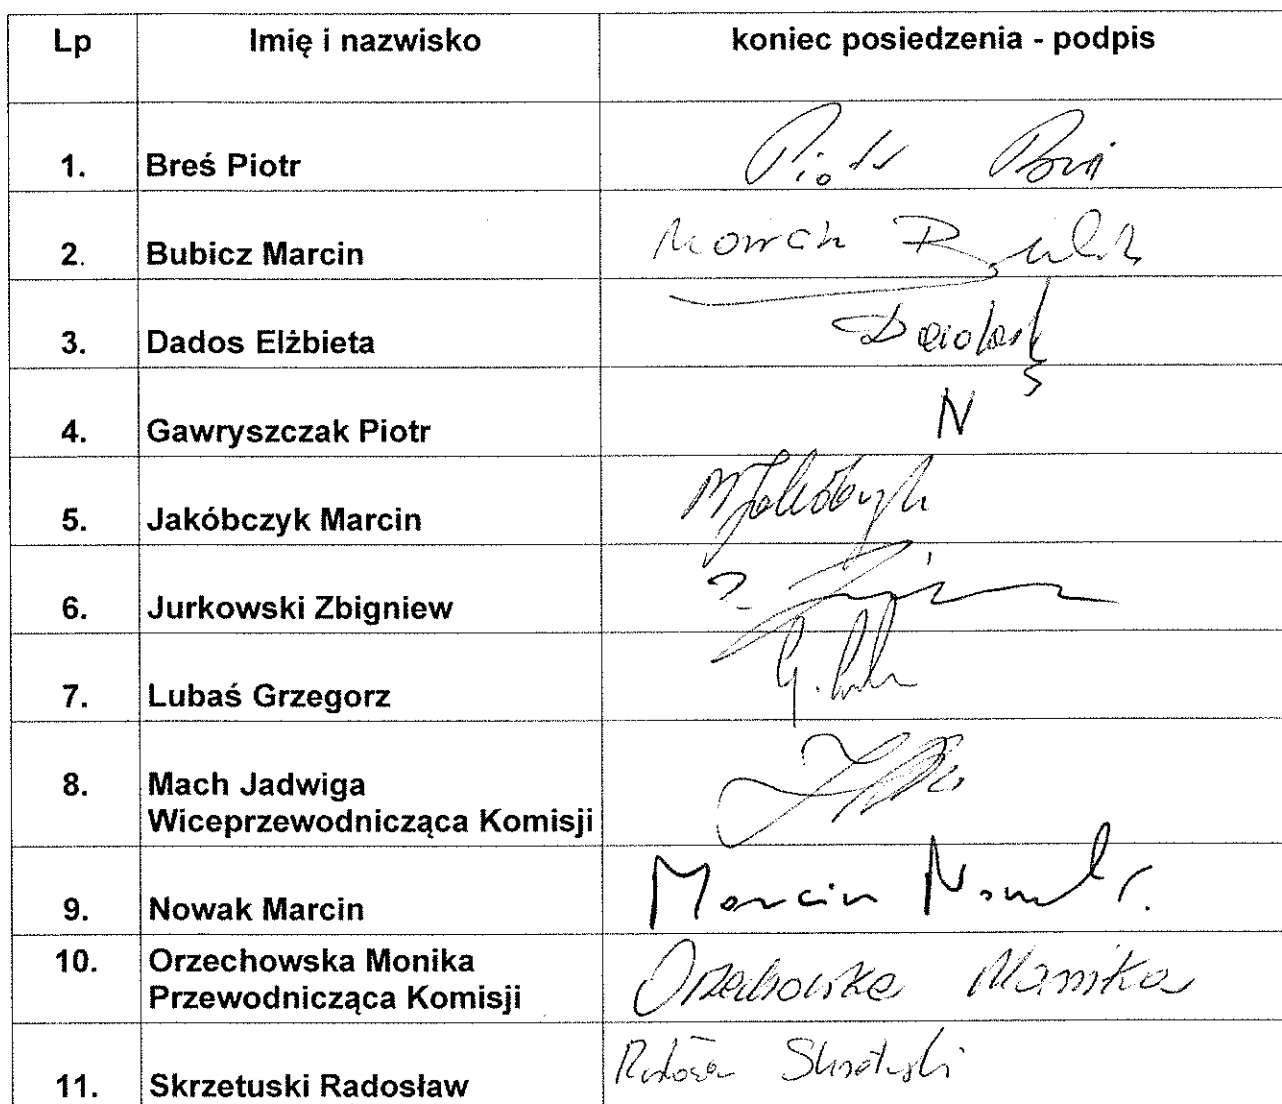 Lp Imię i nazwisko koniec posiedzenia - podpis
1. Breś Piotr Piotr Breś
2. Bubicz Marcin Marcin
3. Dados Elżbieta
4. Gawryszczak Piotr N
5. Jakóbczyk Marcin MJakóbczyk
6. Jurkowski Zbigniew
7. Lubaś Grzegorz G.
8. Mach Jadwiga
Wiceprzewodnicząca Komisji
9. Nowak Marcin Marcin Nowak
10. Orzechowska Monika
Przewodnicząca Komisji Orzechowska Monika
11. Skrzetuski Radosław Radosław Skrzetuski